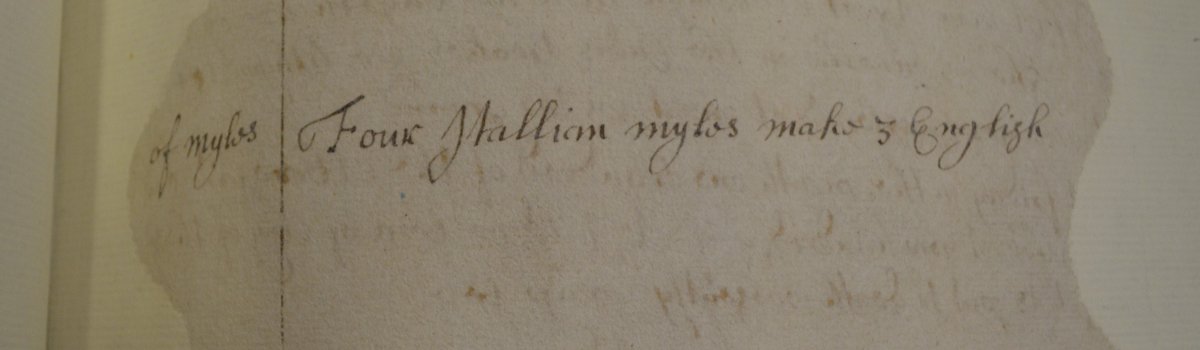 of myles Four Itallian myles make 3 English